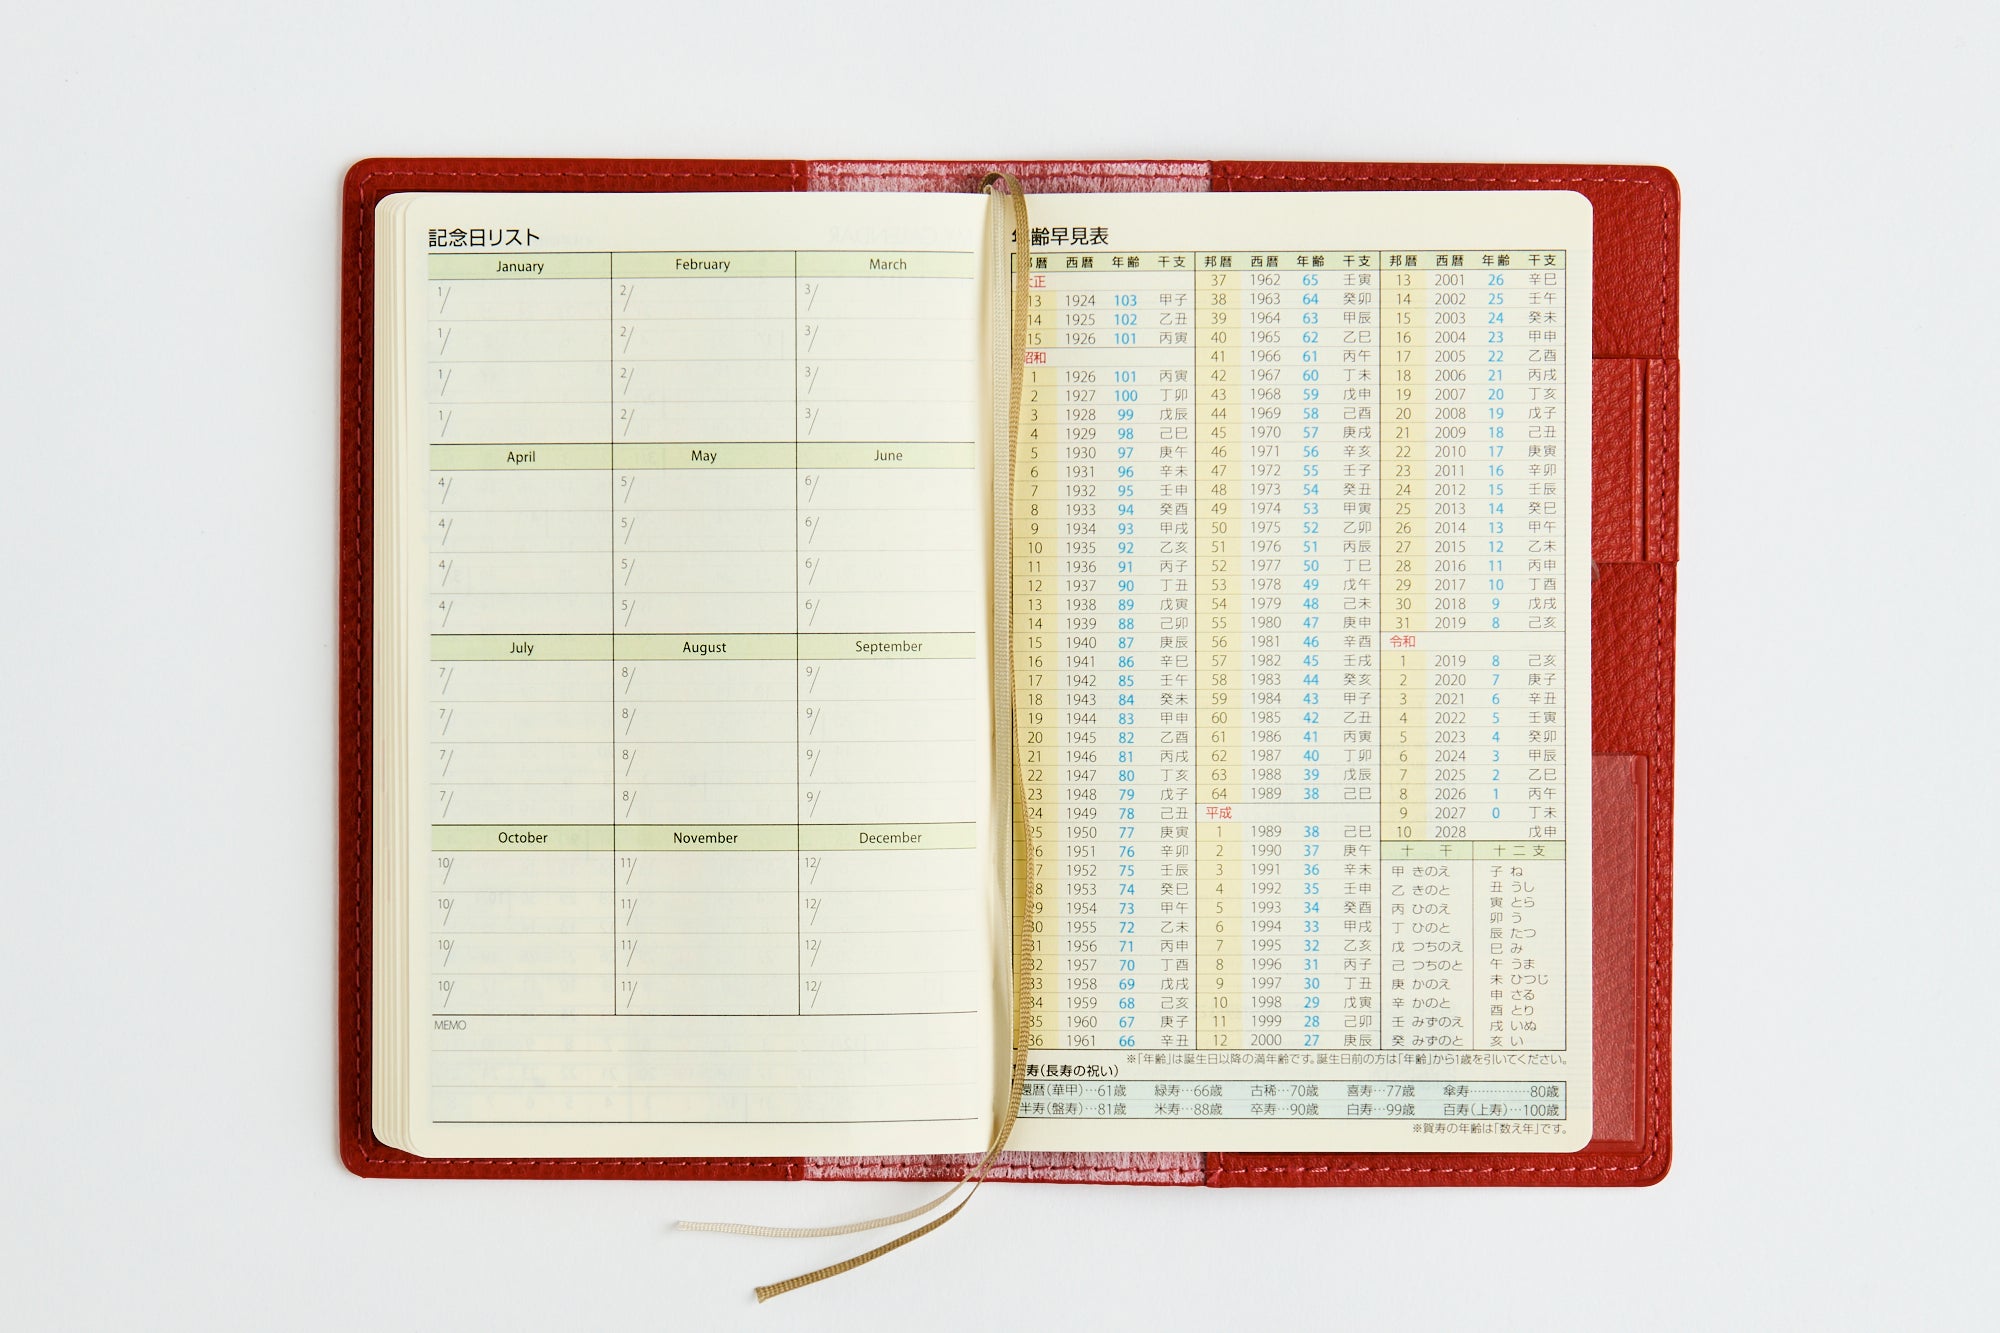 記念日リスト
January February March
1/ 2/ 3/
1/ 2/ 3/
1/ 2/ 3/
1/ 2/ 3/
April May June
4/ 5/ 6/
4/ 5/ 6/
4/ 5/ 6/
4/ 5/ 6/
July August September
7/ 8/ 9/
7/ 8/ 9/
7/ 8/ 9/
7/ 8/ 9/
October November December
10/ 11/ 12/
10/ 11/ 12/
10/ 11/ 12/
10/ 11/ 12/
MEMO
年齢早見表
邦暦 西暦 年齢 干支
大正
13 1924 103 甲子
14 1925 102 乙丑
15 1926 101 丙寅
昭和
1 1926 101 丙寅
2 1927 100 丁卯
3 1928 99 戊辰
4 1929 98 己巳
5 1930 97 庚午
6 1931 96 辛未
7 1932 95 壬申
8 1933 94 癸酉
9 1934 93 甲戌
10 1935 92 乙亥
11 1936 91 丙子
12 1937 90 丁丑
13 1938 89 戊寅
14 1939 88 己卯
15 1940 87 庚辰
16 1941 86 辛巳
17 1942 85 壬午
18 1943 84 癸未
19 1944 83 甲申
20 1945 82 乙酉
21 1946 81 丙戌
22 1947 80 丁亥
23 1948 79 戊子
24 1949 78 己丑
25 1950 77 庚寅
26 1951 76 辛卯
27 1952 75 壬辰
28 1953 74 癸巳
29 1954 73 甲午
30 1955 72 乙未
31 1956 71 丙申
32 1957 70 丁酉
33 1958 69 戊戌
34 1959 68 己亥
35 1960 67 庚子
36 1961 66 辛丑
邦暦 西暦 年齢 干支
37 1962 65 壬寅
38 1963 64 癸卯
39 1964 63 甲辰
40 1965 62 乙巳
41 1966 61 丙午
42 1967 60 丁未
43 1968 59 戊申
44 1969 58 己酉
45 1970 57 庚戌
46 1971 56 辛亥
47 1972 55 壬子
48 1973 54 癸丑
49 1974 53 甲寅
50 1975 52 乙卯
51 1976 51 丙辰
52 1977 50 丁巳
53 1978 49 戊午
54 1979 48 己未
55 1980 47 庚申
56 1981 46 辛酉
57 1982 45 壬戌
58 1983 44 癸亥
59 1984 43 甲子
60 1985 42 乙丑
61 1986 41 丙寅
62 1987 40 丁卯
63 1988 39 戊辰
64 1989 38 己巳
平成
1 1989 38 己巳
2 1990 37 庚午
3 1991 36 辛未
4 1992 35 壬申
5 1993 34 癸酉
6 1994 33 甲戌
7 1995 32 乙亥
8 1996 31 丙子
9 1997 30 丁丑
10 1998 29 戊寅
11 1999 28 己卯
12 2000 27 庚辰
邦暦 西暦 年齢 干支
13 2001 26 辛巳
14 2002 25 壬午
15 2003 24 癸未
16 2004 23 甲申
17 2005 22 乙酉
18 2006 21 丙戌
19 2007 20 丁亥
20 2008 19 戊子
21 2009 18 己丑
22 2010 17 庚寅
23 2011 16 辛卯
24 2012 15 壬辰
25 2013 14 癸巳
26 2014 13 甲午
27 2015 12 乙未
28 2016 11 丙申
29 2017 10 丁酉
30 2018 9 戊戌
31 2019 8 己亥
令和
1 2019 8 己亥
2 2020 7 庚子
3 2021 6 辛丑
4 2022 5 壬寅
5 2023 4 癸卯
6 2024 3 甲辰
7 2025 2 乙巳
8 2026 1 丙午
9 2027 0 丁未
10 2028 戊申
十干
甲 きのえ
乙 きのと
丙 ひのえ
丁 ひのと
戊 つちのえ
己 つちのと
庚 かのえ
辛 かのと
壬 みずのえ
癸 みずのと
十二支
子 ね
丑 うし
寅 とら
卯 う
辰 たつ
巳 み
午 うま
未 ひつじ
申 さる
酉 とり
戌 いぬ
亥 い
※「年齢」は誕生日以降の満年齢です。誕生日前の方は「年齢」から1歳を引いてください。
寿（長寿の祝い）
還暦（華甲）…61歳 緑寿…66歳 古稀…70歳 喜寿…77歳 傘寿…………80歳
半寿（盤寿）…81歳 米寿…88歳 卒寿…90歳 白寿…99歳 百寿（上寿）…100歳
※賀寿の年齢は「数え年」です。